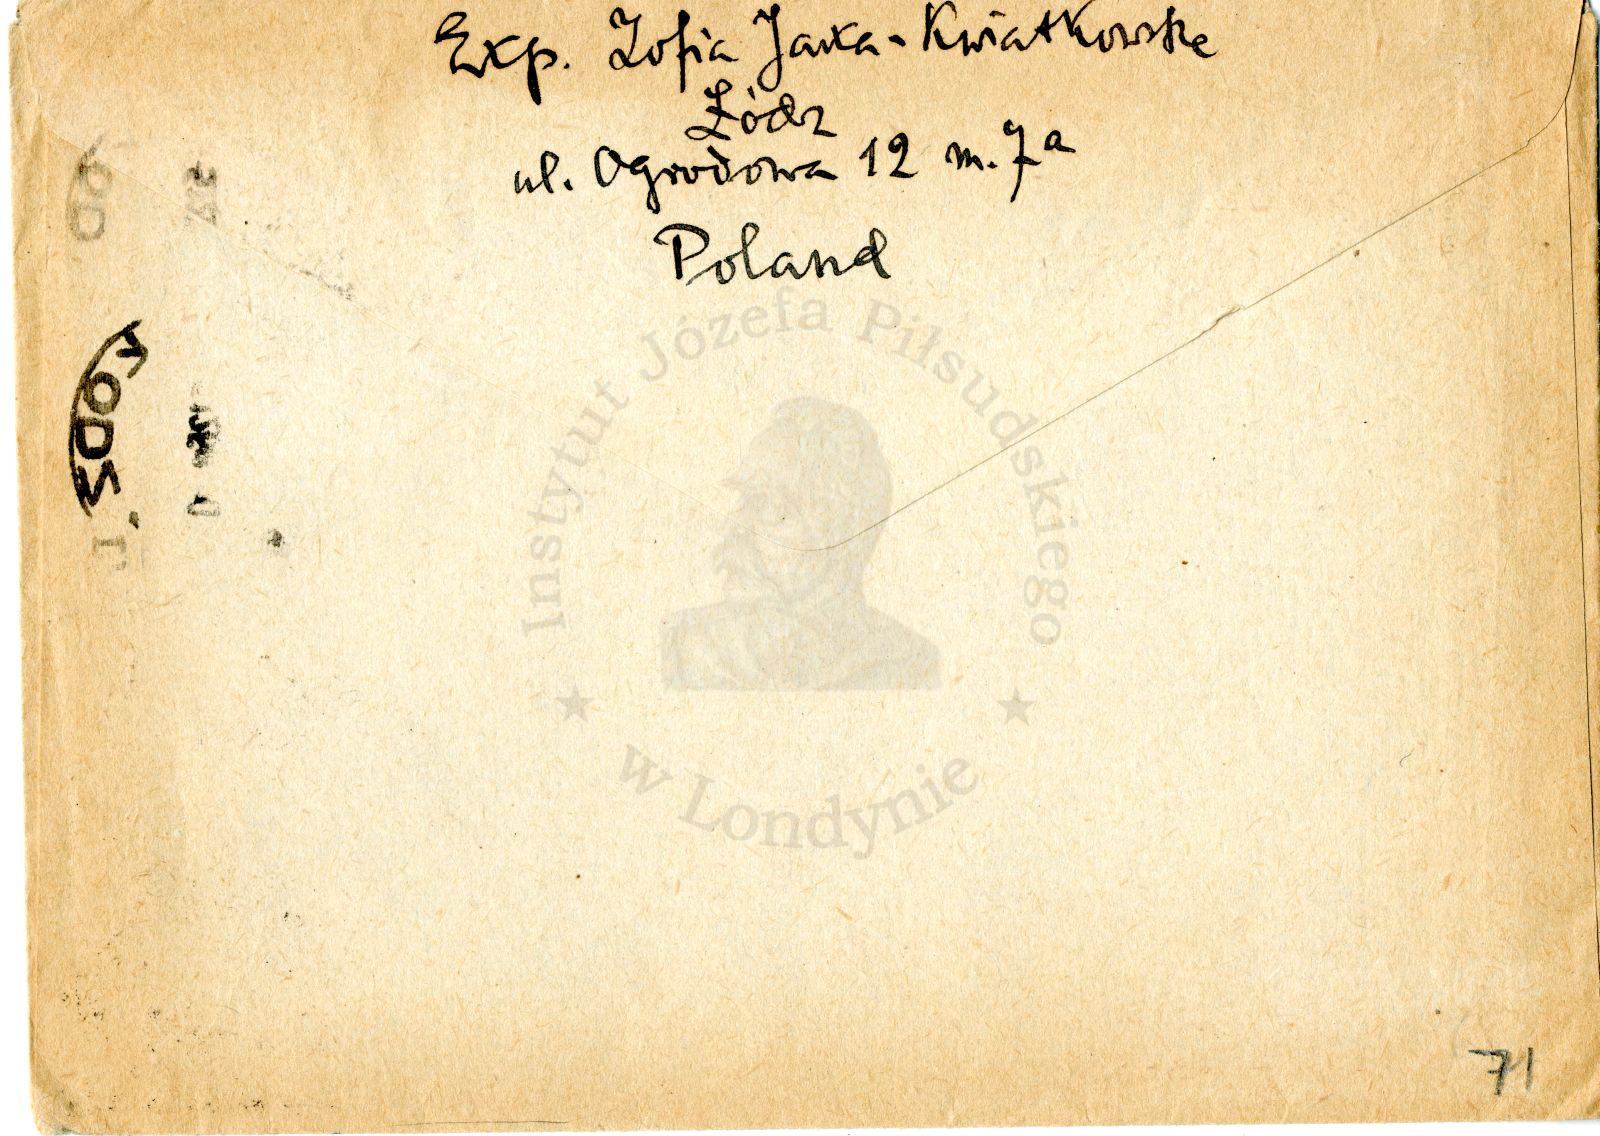 Exp. Zofia Jaxa-Kwiatkowska
Łódz
ul. Ogrodowa 12 m. 7a
Poland
ŁÓDŹ 1
Instytut Józefa Piłsudskiego
w Londynie
71